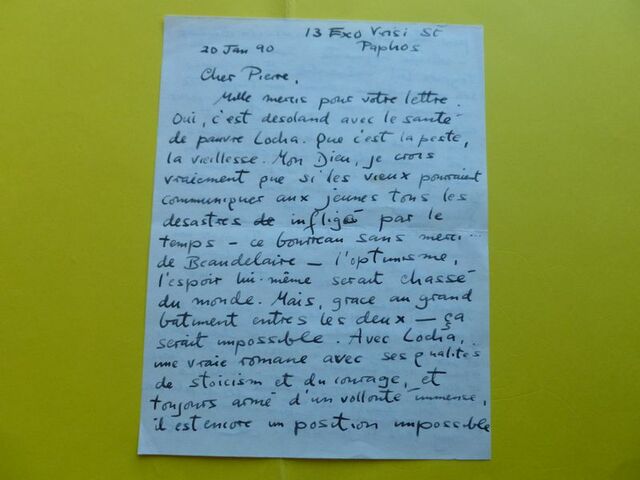 13 Exo Vrisi St
Paphos
20 Jan 90
Cher Pierre,
Mille mercis pour votre lettre.
Oui, c'est desoland avec le santé
de pauvre Locha. Que c'est la peste,
la vieillesse. Mon Dieu, je crois
vraiement que si les vieux pouraient
communiquer aux jeunes tous les
desastres de infligé par le
temps – ce bourreau sans merci...
de Beaudelaire – l'optimisme,
l'espoir lui-même serait chassé
du monde. Mais, grace au grand
batiment entres les deux – ça
serait impossible. Avec Locha,
une vraie romane avec ses qualités
de stoicism et du courage, et
toujours armé d'un vollonté immense,
il est encore un position impossible